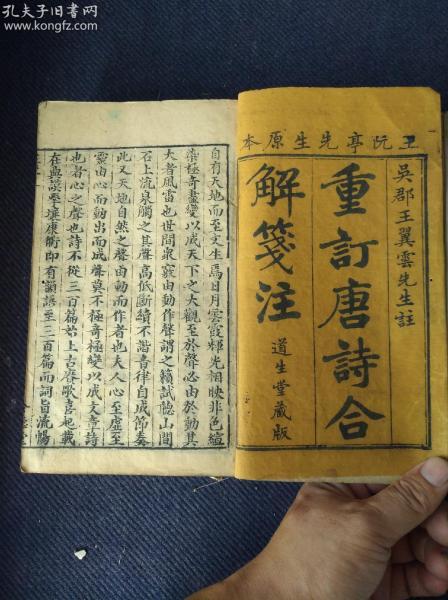 孔夫子旧书网
www.kongfz.com
王阮亭先生原本
吳郡王翼雲先生註
重訂唐詩合
解箋注
道生堂藏版
自有天地而至文生焉日月雲霞輝光相映非色絢
藻極奇盡變以成天下之大觀至於聲心由於動其
大者風雷也世間衆竅由動作聲謂之籟試聽山間
石上流泉觸之其聲高低斷續不諧音律自成節奏
此又天地自然之聲由動而作者也夫人心至虛至
靈由心而動出而成聲莫不極奇極變以成文章詩
也者心之聲也詩不從三百篇始上古賡歌喜起載
在典謨至壤康衢即有韻語至三百篇而詞旨流暢